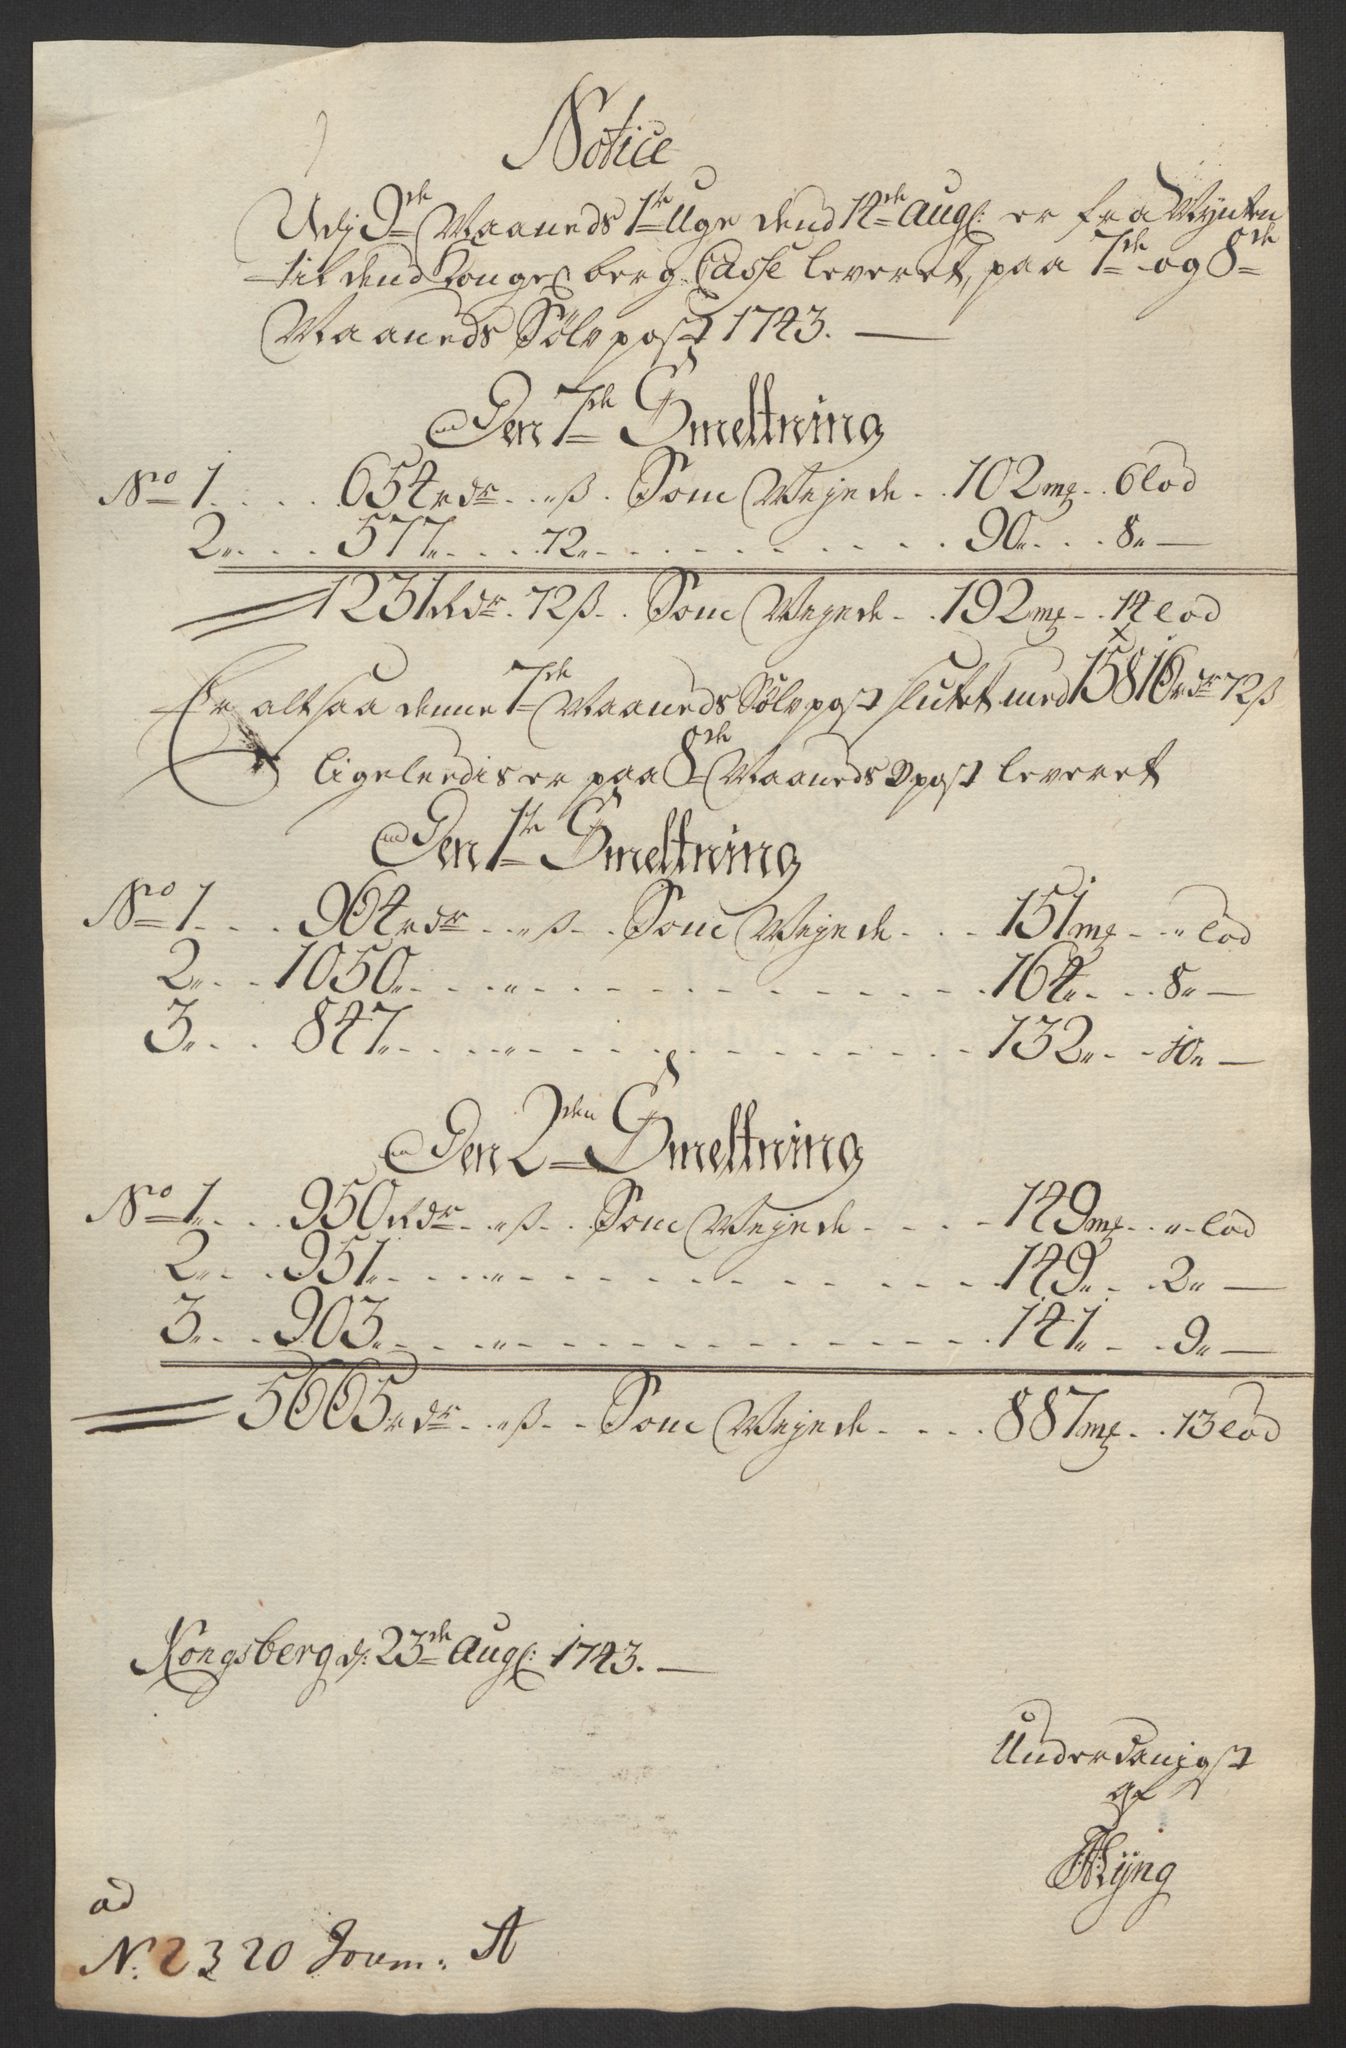 Notice
Udj 9de Maaneds 1te Uge dend 14de Augs: er fra Mynten
til dend Konges berg: Casse leveret, paa 7de og 8de
Maaneds Sølvpost 1743. —
Den 7de Smeltning
No 1 . . . . 654 rdr . „ ß . Som Veyede . . 102 mz . . 6 lod
2„ . . . 577„ . . . 72„ . . . . . . . . . . 90„ . . . 8„ —
1231 Rdr . 72 ß . . Som Veyede . . 192 mz . . 14 lod
Er altsaa denne 7de Maaneds Sølvpost slutet med 15816 rdr 72 ß
ligeleedis er paa 8de Maaneds post leveret
Den 1te Smeltning
No 1 . . . 964 rdr . . „ ß . . Som Veyede . . . 151 mz . . „ lod
2„ . . 1050„ . . . „ . . . . . . . . . . 164„ . . . 8„ —
3„ . . . 847„ . . . „ . . . . . . . . . . 132„ . . 10„ —
Den 2den Smeltning
No 1„ . . . 950 Rdr . . „ ß . . Som Veyede . . . . 149 mz . . „ lod
2„ . . . 951„ . . . „ . . . . . . . . . . 149„ . . 2„ —
3„ . . . 903„ . . . „ . . . . . . . . . . 141„ . . 9„ —
5665 rdr . . „ ß . . Som Veyede . . . . 887 mz . . 13 lod
Kongsberg d: 23de Augs: 1743. —
Underdanigst
af
Ryng
ad
N: 2320 Journ: A